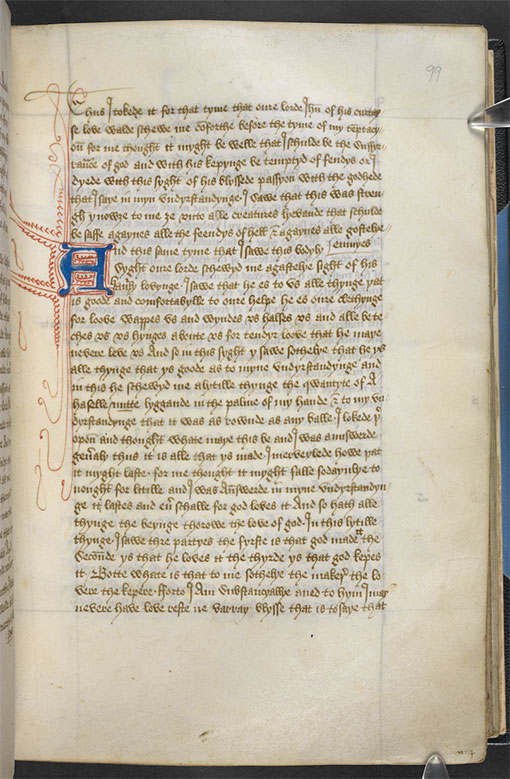 99
Thus I tokede it for that tyme that oure lorde Ihu of his curtay
se love walde schewe me coforthe before the tyme of my teptacy
on for me thought it myght be welle that I schulde be the suffyr
ance of god and with his kepynge be temptyd of fendys or I
dyede with this syght of his blyssede passyon with the godhede
that I saye in myn undyrstandynge I sawe that this was stren
gh ynowȝe to me ȝe unto alle creatures lyevande that schulde
be saffe agaynes alle the feendys of hell & agaynes alle gostelye
And this same tyme that I sawe this bodyly enmyes
syght oure lorde schewyd me a gastelye sight of his
hamly lovynge I sawe that he es to us alle thynge þat
is goode and comfortabylle to oure helpe he es oure clethynge
for loove wappes us and wyndes us halses us and alle be te
ches us and hynges aboute us for tendyr loove that he maye
nevere leve us And so in this syght y sawe sothelye that he ys
alle thynge that ys goode as to myne undyrstandynge and
in this he schewyd me a lytille thynge the qwantyte of A
haselle nutte lyggande in the palme of my hande & to my un
dyrstandynge that it was as rownde as any balle I lokede þer
opon and thought whate maye this be and I was annswerde
generaly thus it is alle that ys made I merveylede howe þat
it myght laste for me thought it myght falle sodaynlye to
nought for litille and I was annswerde in myne undyrstandyn
ge it lastes and ever schalle for god loves it And so hath alle
thynge the beynge thorowe the love of god In this lytille
thynge I sawe thre partyes the fyrste is that god made it the
seconde ys that he loves it the thyrde ys that god kepes
it Botte whate is that to me sothelye the makere the lo
vere the kepere fforto I Am substancyallye aned to hym I may
nevere have love reste ne varray blysse that is to saye that